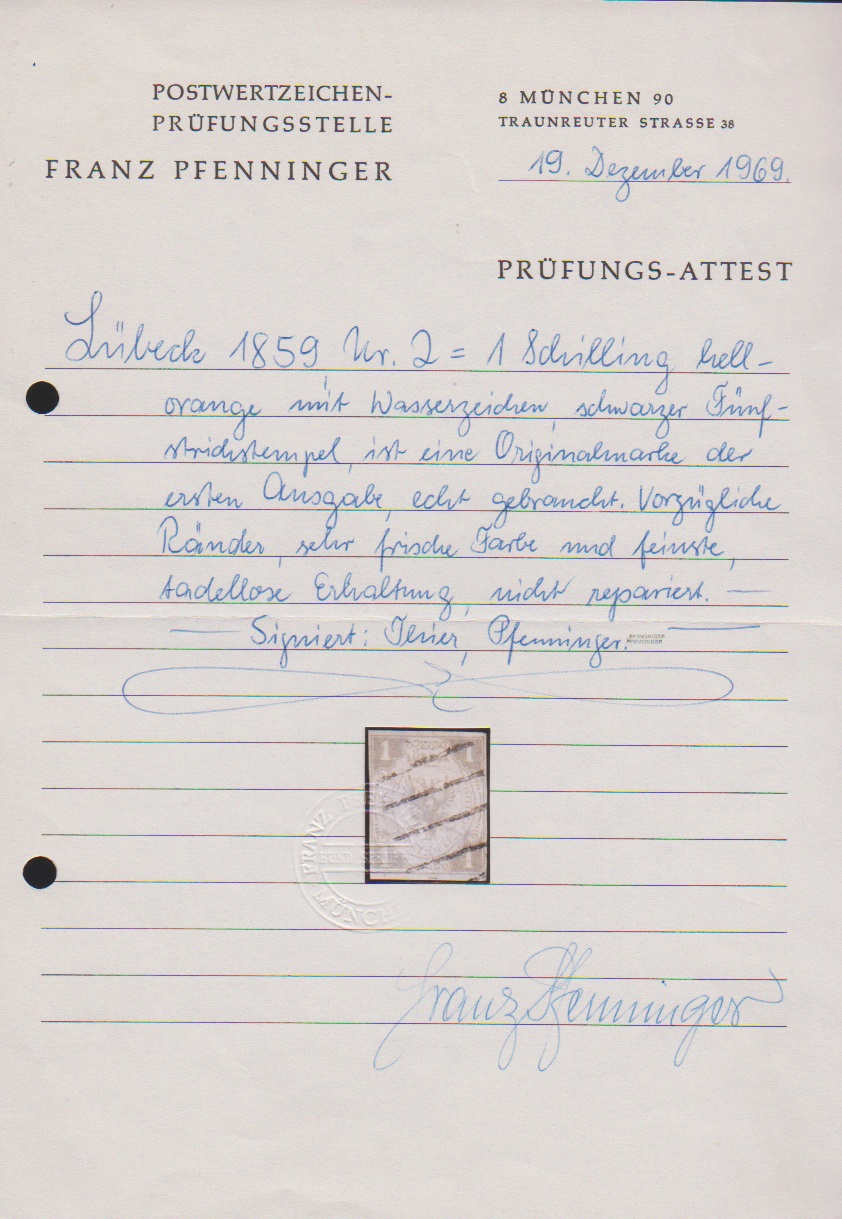 POSTWERTZEICHEN-
PRÜFUNGSSTELLE
FRANZ PFENNINGER
8 MÜNCHEN 90
TRAUNREUTER STRASSE 38
19. Dezember 1969.
PRÜFUNGS-ATTEST
Lübeck 1859 Nr. 2 = 1 Schilling hell-
orange mit Wasserzeichen, schwarzer Fünf-
strichstempel, ist eine Originalmarke der
ersten Ausgabe, echt gebraucht. Vorzügliche
Ränder, sehr frische Farbe und feinste,
tadellose Erhaltung, nicht repariert. —
— Signiert: Thier, Pfenninger. —
PFENNINGER
PFENNINGER
1 1
1 1
FRANZ
MÜNCHEN
Franz Pfenninger